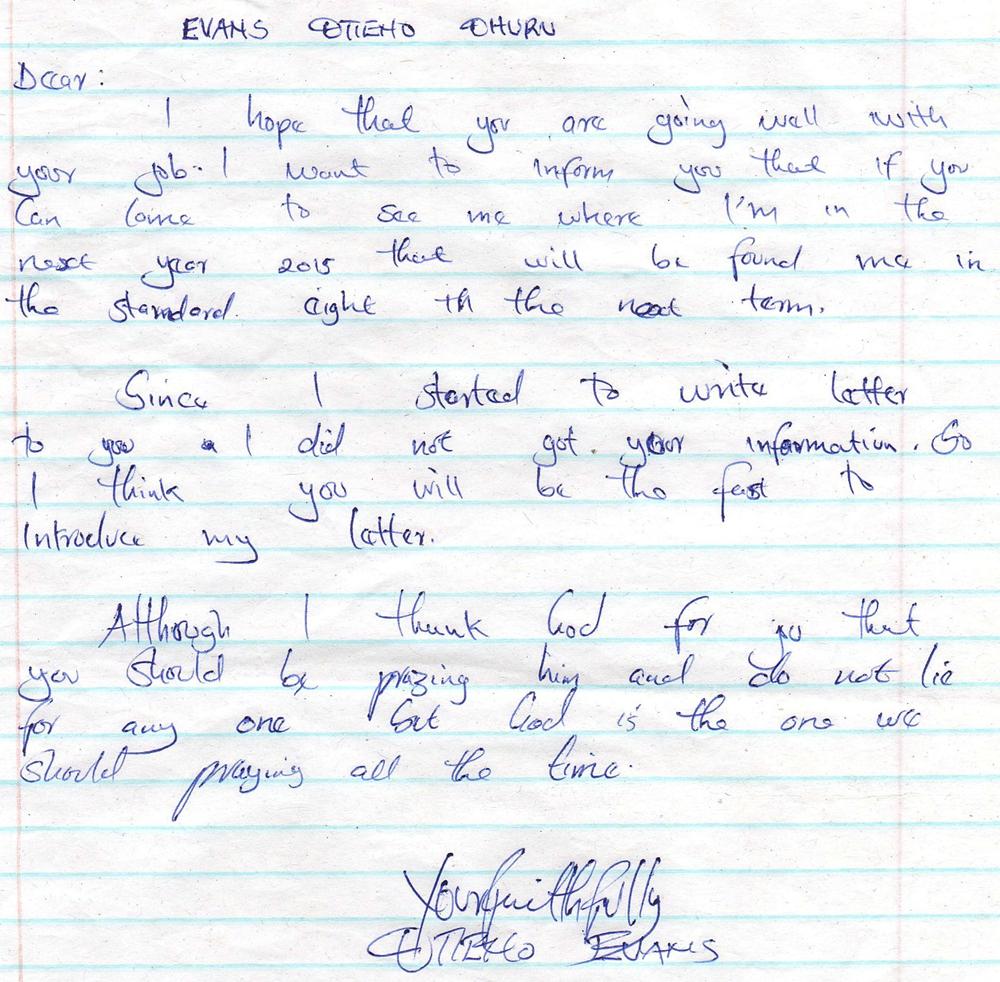 EVANS OTIENO OHURU
Dear:
I hope that you are going well with
your job. I want to inform you that if you
Can Come to see me where I'm in the
next year 2015 that will be found me in
the standard eight in the next term.
Since I started to write letter
to you I did not got your information. So
I think you will be the first to
Introduce my letter.
Although I thank God for you that
you should be prazing him and do not lie
for any one but God is the one we
should praying all the time.
Yourfaithfully
OTIENO EVANS